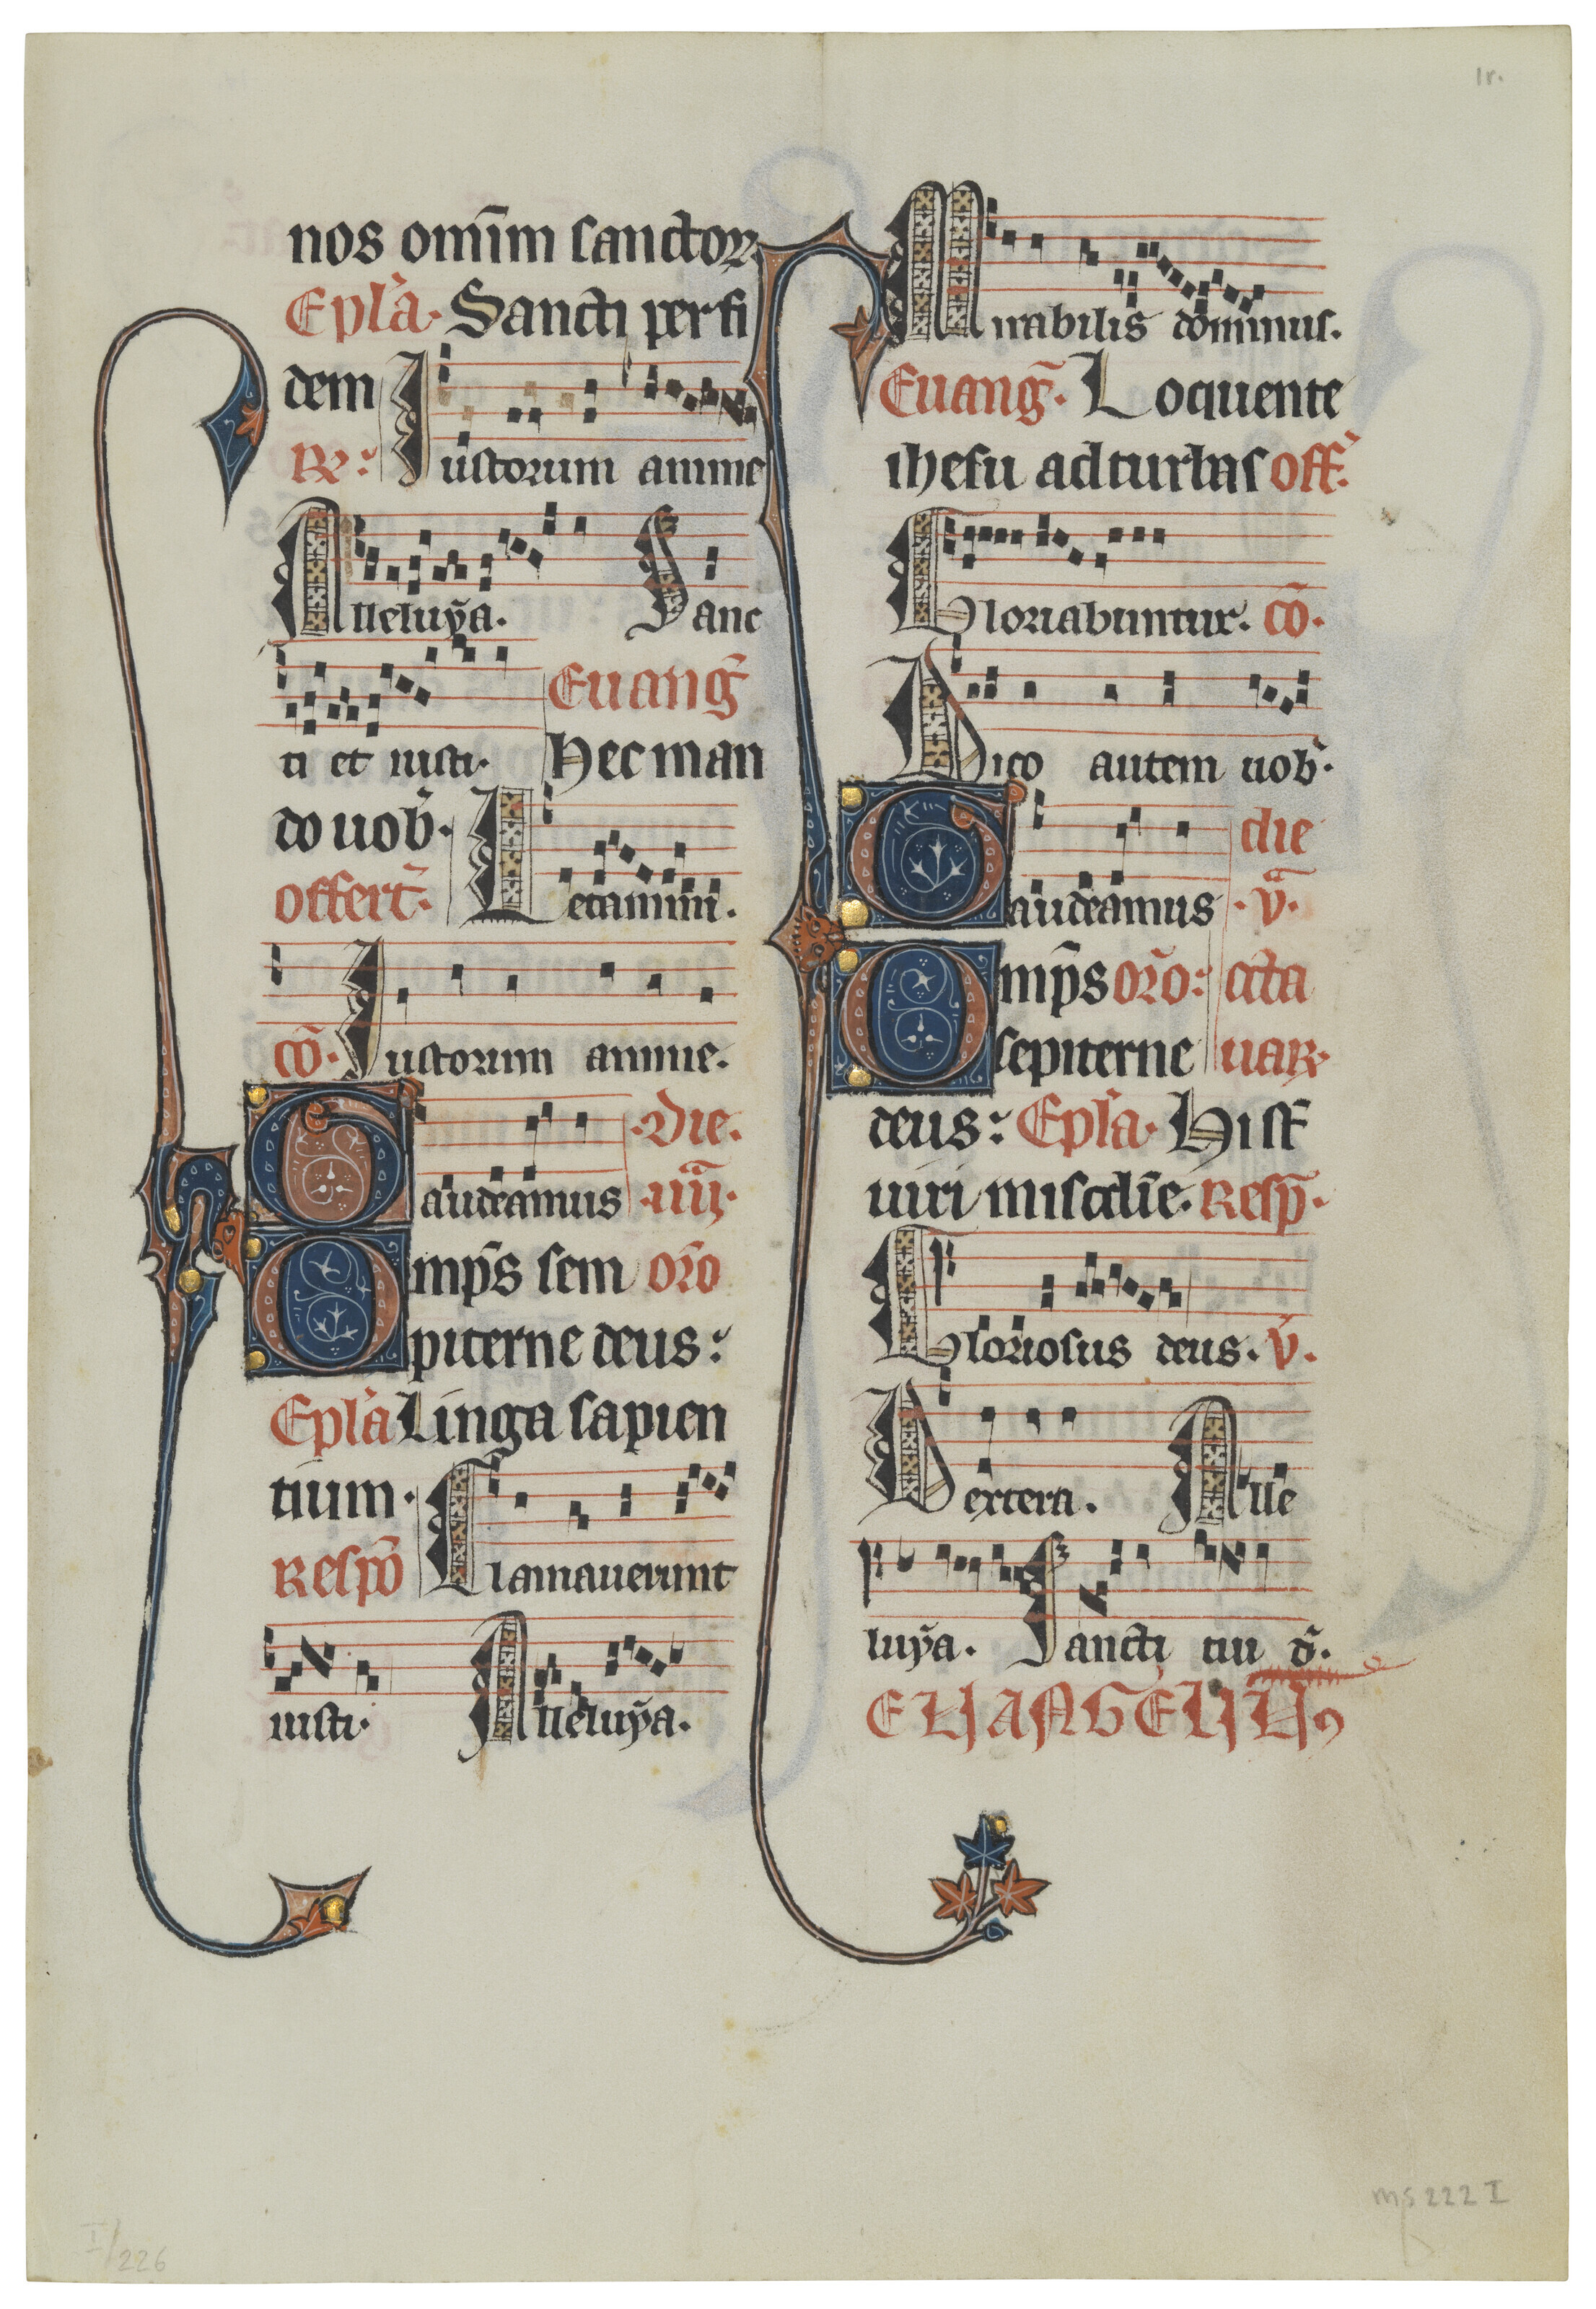 1r.
nos om̄im sanctoꝝ
Epl̄a· Sancti per fi
dem
℞: Iustorum anime
Alleluȳa. Sanc
Euanḡ
ti et iusti· Hec man
do uob̄·
Offert̄· Letamini.
cō· Iustorum anime.
·Die·
Gaudeamus ·iiij·
Omp̄s sem or̄o
piterne deus:
Epl̄a Linga sapien
tium·
Resp̄o Clamauerunt
iusti· Alleluȳa.
Mirabilis dominus.
Euanḡ· Loquente
ihesu ad turbas off̄·
Gloriabuntur· cō·
Dico autem uob̄·
die
Gaudeamus ·v̄·
Omp̄s or̄o: octa
sepiterne uar·
deus: Epl̄a· Hii s̄t
uiri misc̄die· Resp̄·
Gloriosus deus· v̄.
Dextera. Alle
luȳa. Sancti tui d̄.
EUANGELIUꝯ
ms 222 I
I/226